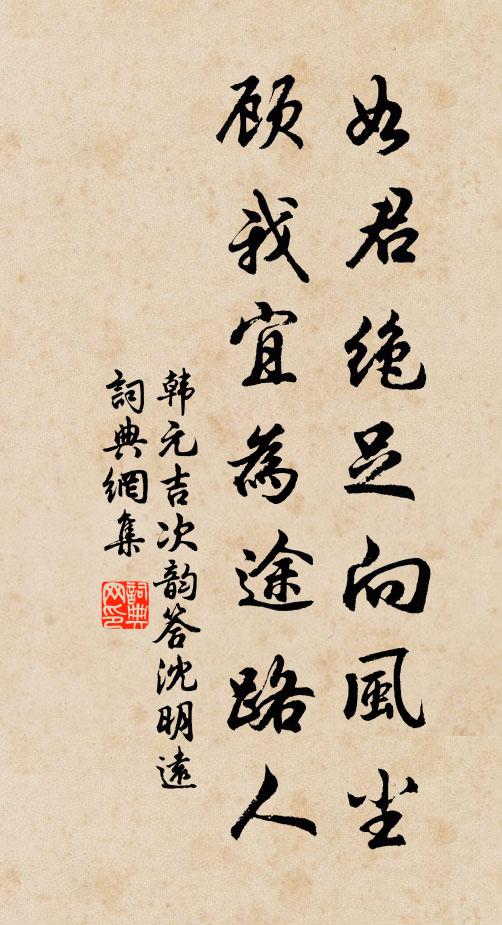 如君绝足向風尘
顾我宜為途路人
韩元吉次韵答沈明遠
詞典網集
詞典
网印